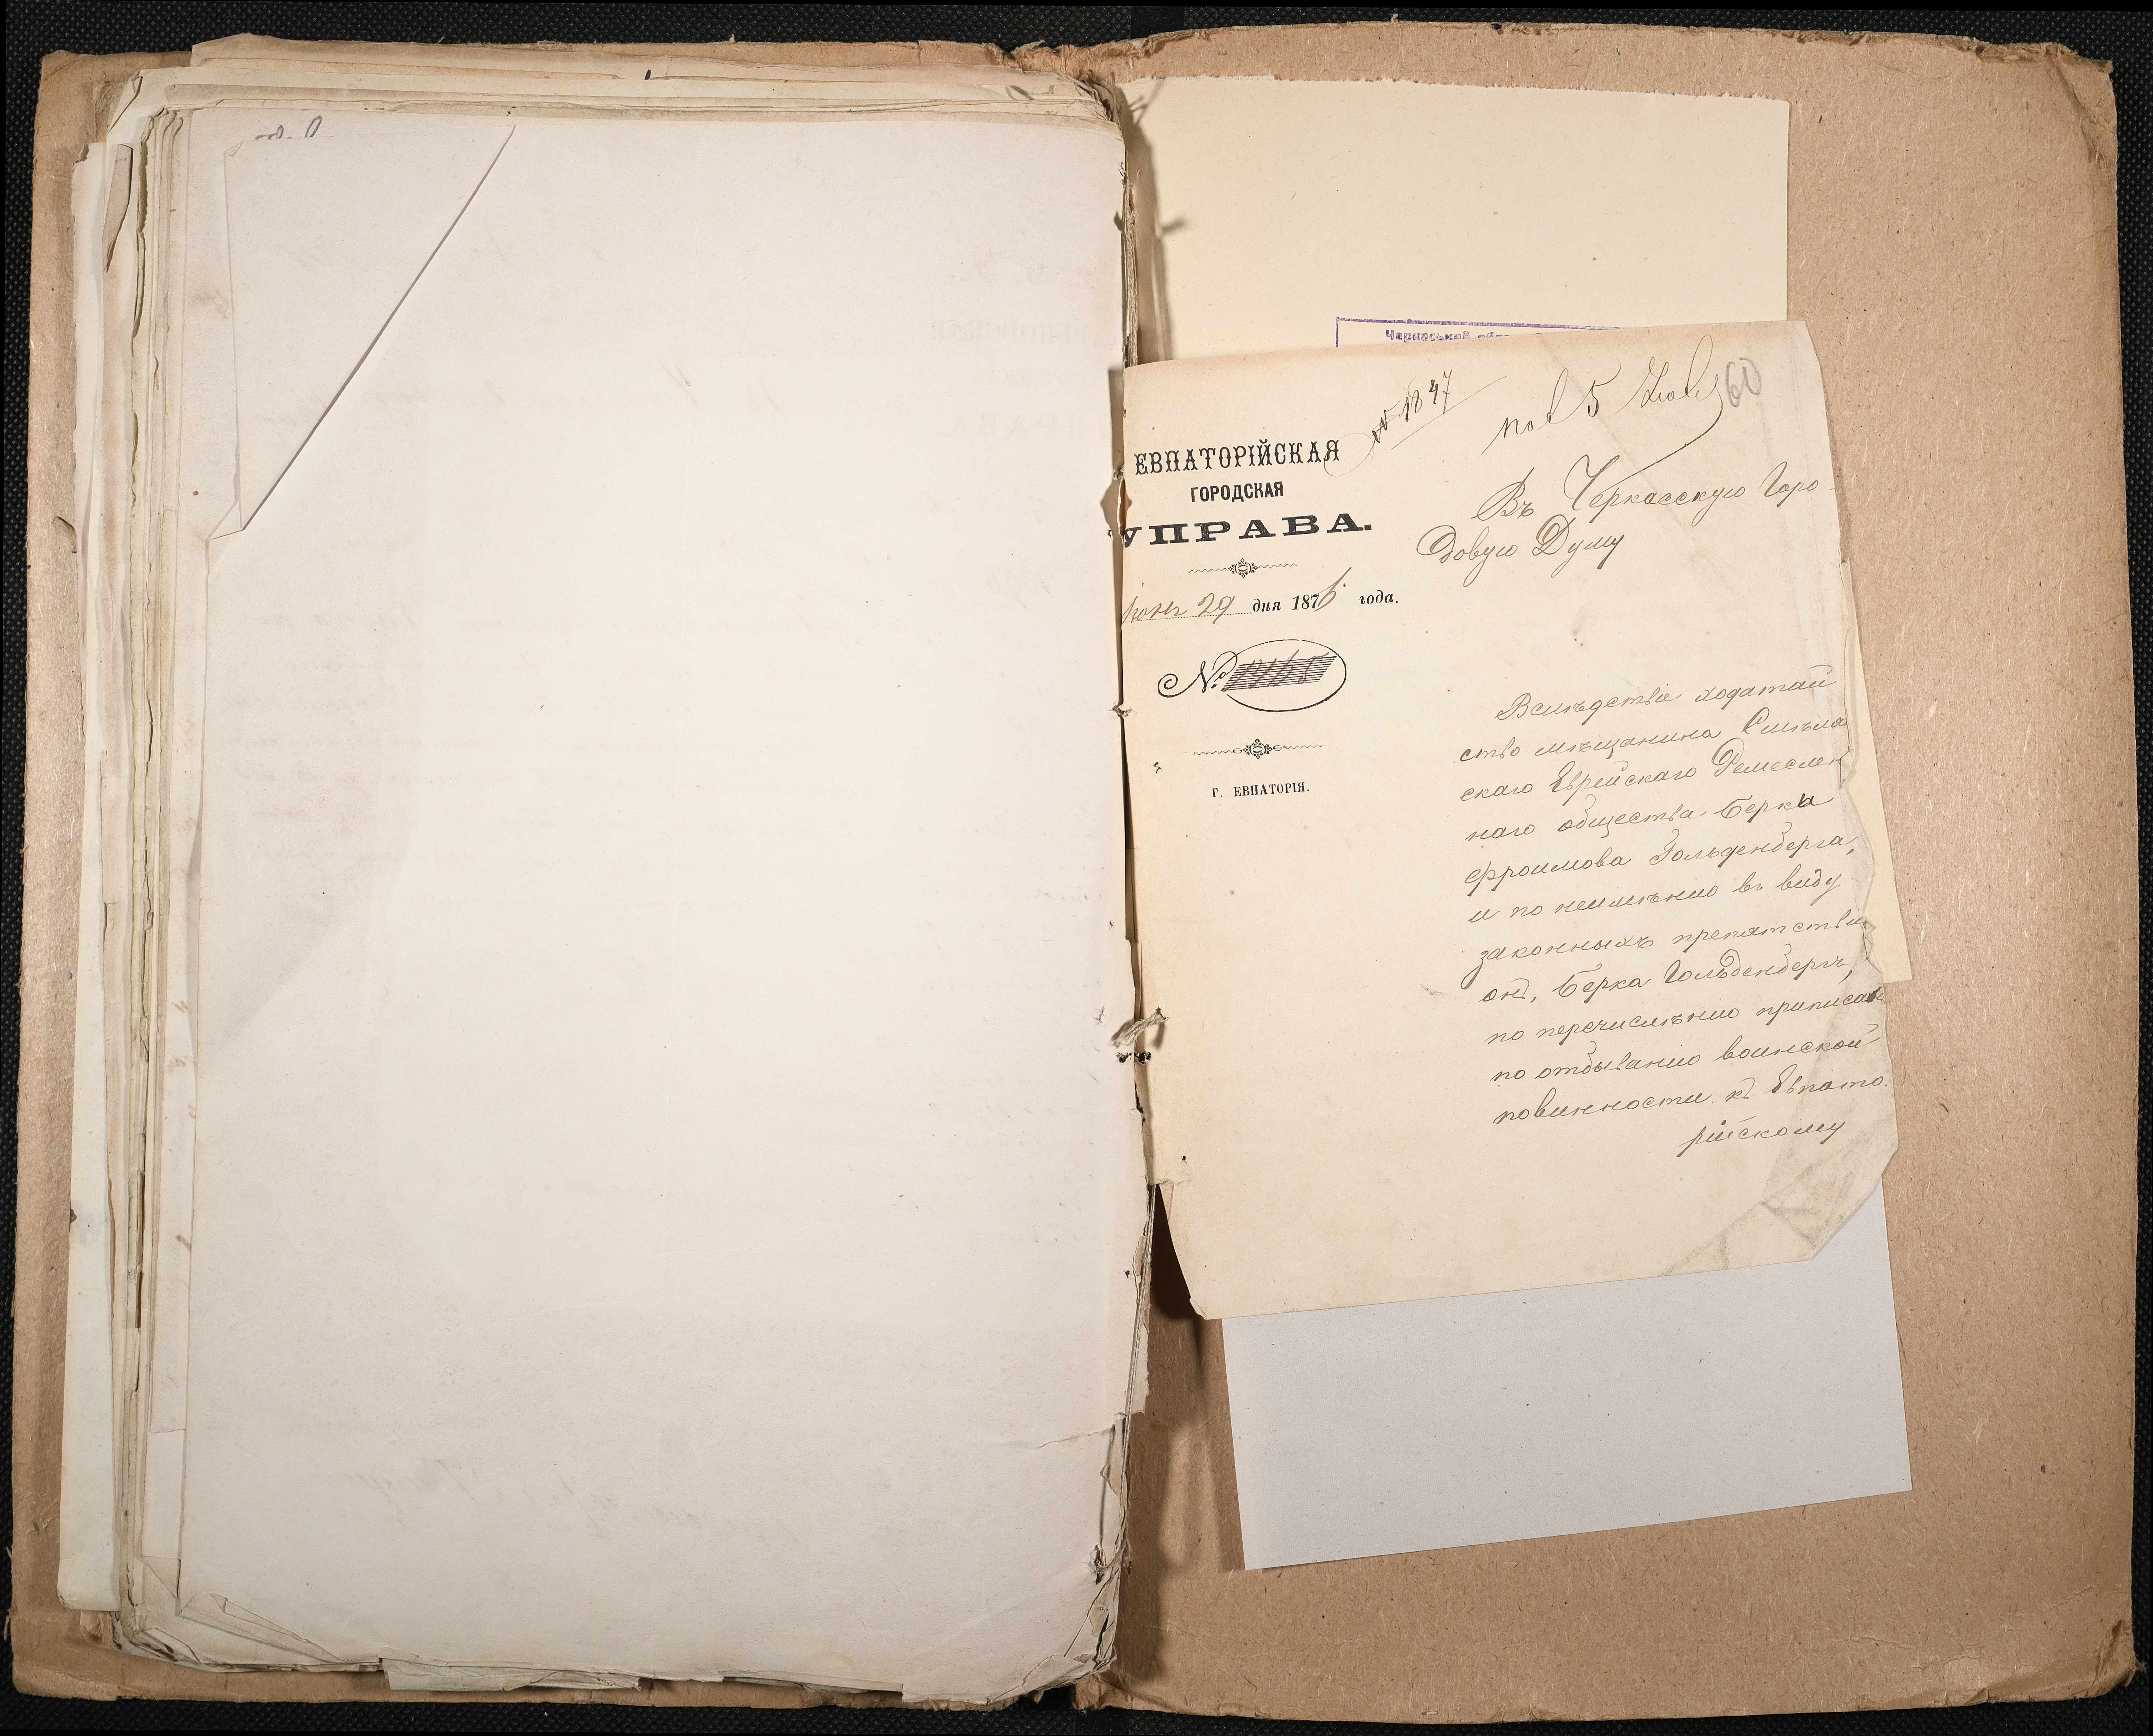 № 1847
пол 5 Юля
60
ЕВПАТОРІЙСКАЯ
ГОРОДСКАЯ
УПРАВА.
Іюнь 29 дня 1876 года.
№
Г. ЕВПАТОРІЯ.
Въ Черкасскую Горо
довую Думу
Вслѣдствіе ходатай
ство мѣщанина Смѣла
скаго Еврейскаго Ремеслен
наго общества Берка
Фроимова Гольденберга,
и по неимѣнію въ виду
законныхъ препятствій
онъ, Берка Гольденбергъ,
по перечисленію приписанъ
по отбыванію воинской
повинности къ Евпато
рійскому